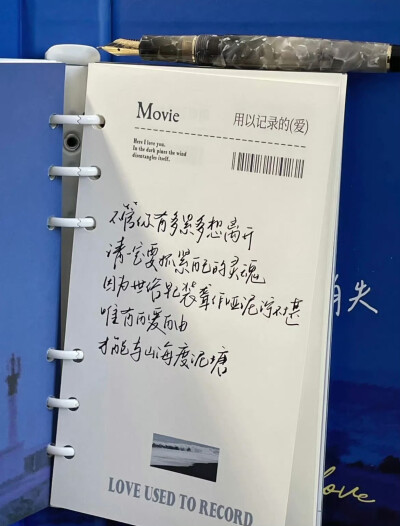 Movie
用以记录的(爱)
Here I love you.
In the dark pines the wind
disentangles itself.
不管你有多累多想离开
请一定要抓紧自己的灵魂
因为世俗装聋作哑泥泞不堪
唯有自爱自由
才能与山海度泥塘
消失
love
LOVE USED TO RECORD